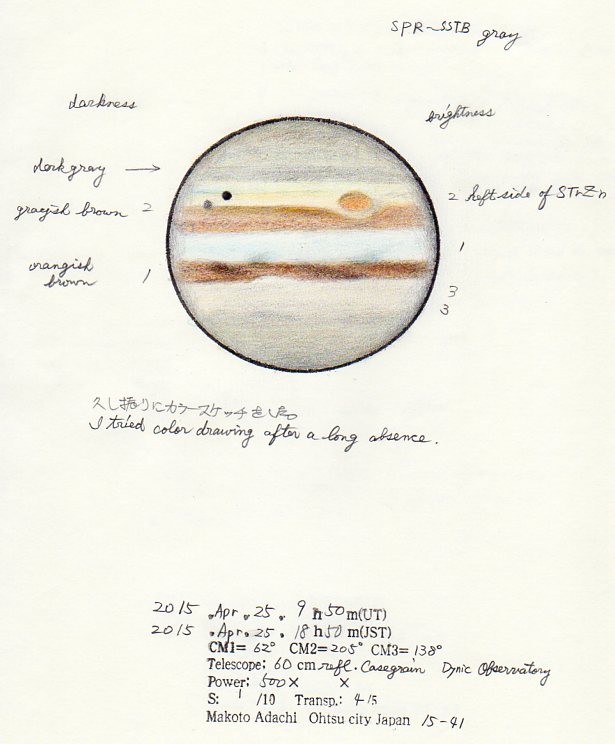 SPR~SSTB gray
darkness
brightness
dark gray →
grayish brown 2
2 left side of STrZn
1
orangish brown 1
3
3
久し振りにカラースケッチをした。
I tried color drawing after a long absence.
2015 .Apr. 25. 9 h 50 m(UT)
2015 .Apr. 25. 18 h 50 m(JST)
CM1= 62° CM2= 205° CM3= 138°
Telescope: 60 cm refl. Cassegrain Dynic Observatory
Power: 500× ×
S: 1 /10 Transp.: 4/5
Makoto Adachi Ohtsu city Japan 15-41